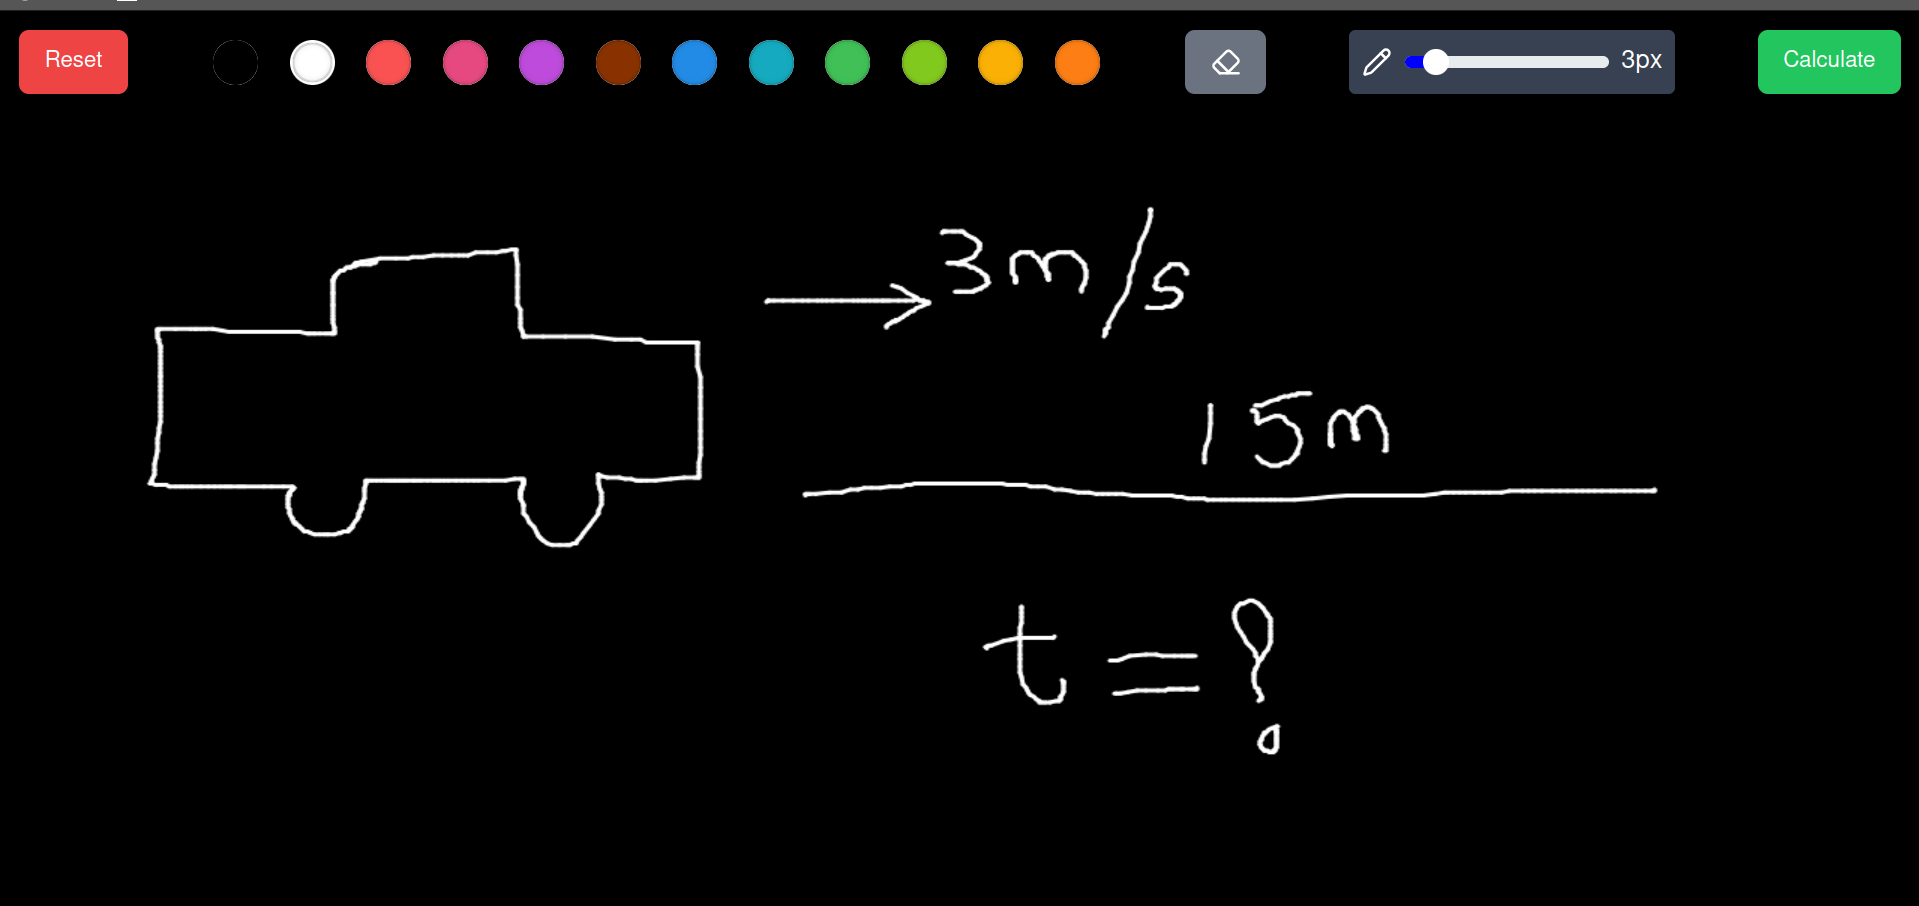 Reset
3px
Calculate
3m/s
15m
t = ?